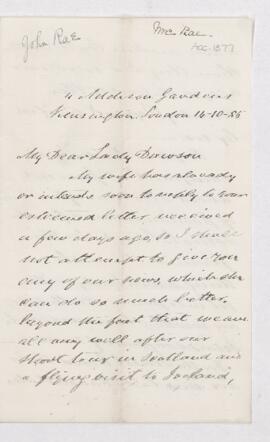 John Rae
Mc Rae
Acc. 1877
4 Addison Gardens
Kensington London 14-10-85
My Dear Lady Dawson
My wife has already
or intends soon to reply to your
esteemed letter received
a few days ago, so I shall
not attempt to give you
any of our news, which she
can do so much better,
beyond the fact that we are
all very well after our
short tour in Scotland and
a flying visit to Ireland,